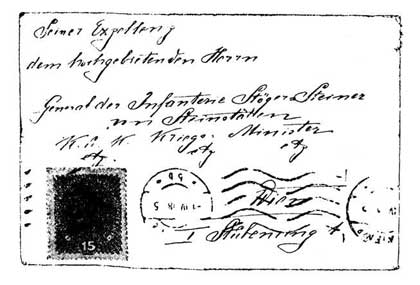 Seiner Exzellenz
dem hochgebietenden Herrn
General der Infanterie Stöger-Steiner
von Steinstätten
K. u. K. Kriegs-Minister
etz. etz. etz
15
Wien
I Stubenring 1
WIEN